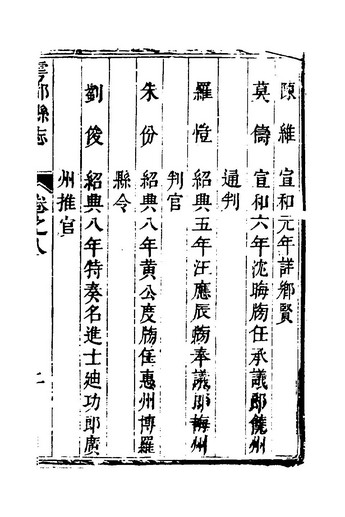 陳維　宣和元年詳鄉賢
莫儔　宣和六年沈晦牓任承議郎饒州
通判
羅愷　紹興五年汪應辰牓奉議郎梅州
判官
朱份　紹興八年黃公度牓任惠州博羅
縣令
劉俊　紹興八年特奏名進士廸功郎廣
州推官
雩都縣志
卷之八